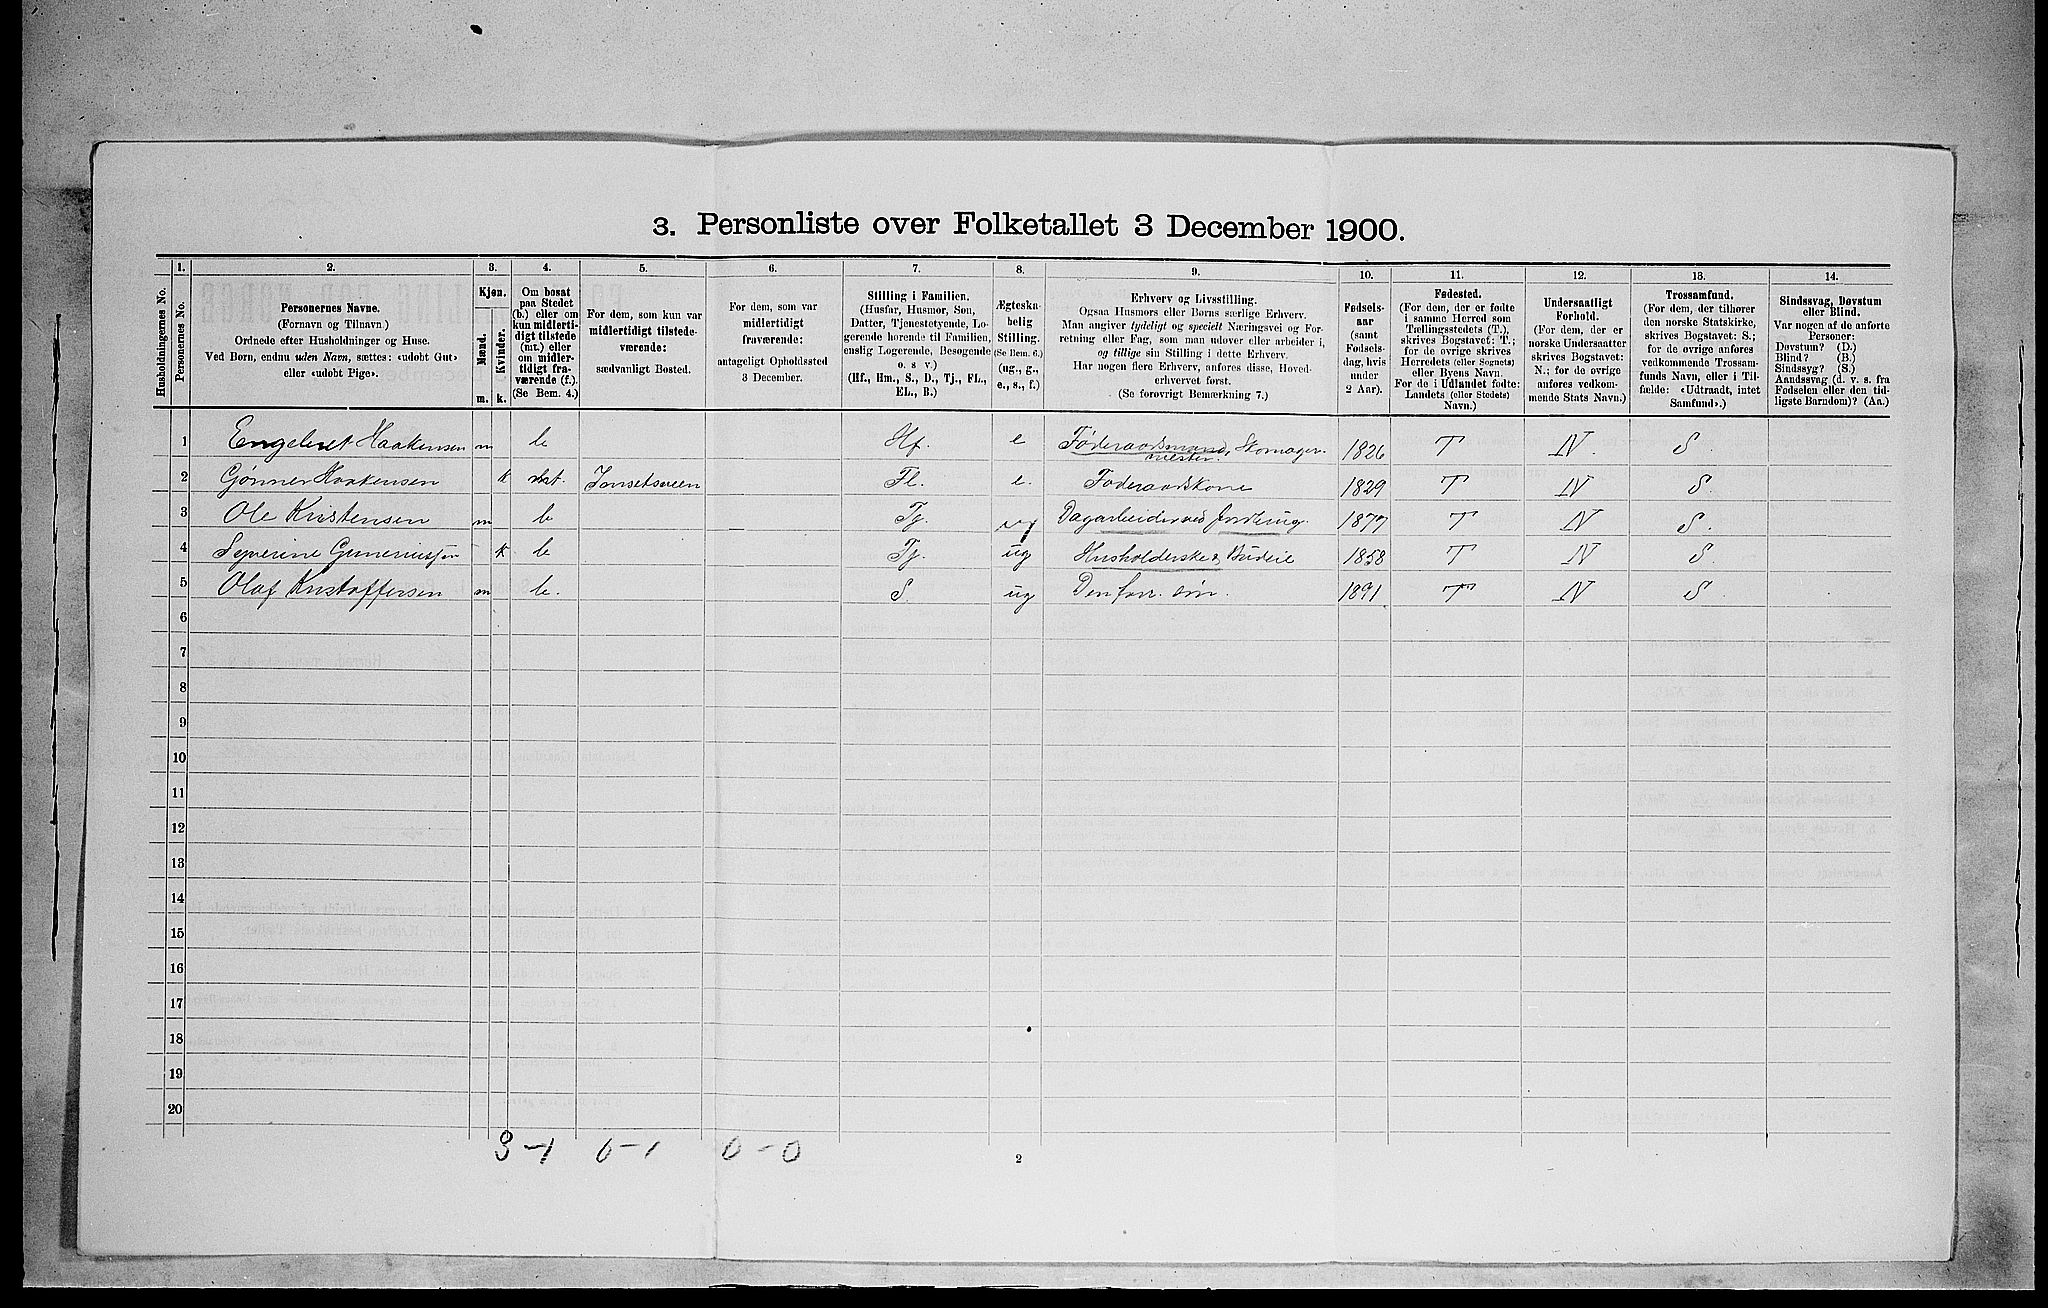 3. Personliste over Folketallet 3 December 1900.
Husholdningernes No.
1.
Personernes No.
2.
Personernes Navne.
(Fornavn og Tilnavn.)
Ordnede efter Husholdninger og Huse.
Ved Børn, endnu uden Navn, sættes: «udøbt Gut»
eller «udøbt Pige».
3.
Kjøn.
Mænd.
Kvinder.
m.
k.
4.
Om bosat
paa Stedet
(b.) eller om
kun midlerti-
digt tilstede
(mt.) eller
om midler-
tidigt fra-
værende (f.).
(Se Bem. 4.)
5.
For dem, som kun var
midlertidigt tilstede-
værende:
sædvanligt Bosted.
6.
For dem, som var
midlertidigt
fraværende:
antageligt Opholdssted
3 December.
7.
Stilling i Familien.
(Husfar, Husmor, Søn,
Datter, Tjenestetyende, Lo-
gerende hørende til Familien,
enslig Logerende, Besøgende
o. s v.)
(Hf., Hm., S., D., Tj., FL.,
EL., B.)
8.
Ægteska-
belig
Stilling.
(Se Bem. 6.)
(ug., g.,
e., s., f.)
9.
Erhverv og Livsstilling.
Ogsaa Husmors eller Børns særlige Erhverv.
Man angiver tydeligt og specielt Næringsvei og For-
retning eller Fag, som man udøver eller arbeider i,
og tillige sin Stilling i dette Erhverv.
Har nogen flere Erhverv, anføres disse, Hoved-
erhvervet først.
(Se forøvrigt Bemærkning 7.)
10.
Fødsels-
aar
(samt
Fødsels-
dag, hvis
under
2 Aar).
11.
Fødested.
(For dem, der er fødte
i samme Herred som
Tællingsstedets (T.),
skrives Bogstavet: T.;
for de øvrige skrives
Herredets (eller Sognets)
eller Byens Navn.
For de i Udlandet fødte:
Landets (eller Stedets)
Navn.)
12.
Undersaatligt
Forhold.
(For dem, der er
norske Undersaatter
skrives Bogstavet:
N.; for de øvrige
anføres vedkom-
mende Stats Navn.)
13.
Trossamfund.
(For dem, der tilhører
den norske Statskirke,
skrives Bogstavet: S.;
for de øvrige anføres
vedkommende Trossam-
funds Navn, eller i Til-
fælde: «Udtraadt, intet
Samfund».)
14.
Sindssvag, Døvstum
eller Blind.
Var nogen af de anførte
Personer:
Døvstum? (D.)
Blind? (B.)
Sindssyg? (S.)
Aandssvag (d. v. s. fra
Fødselen eller den tid-
ligste Barndom)? (Aa.)
1 Engebret Haakensen m b Hf. e Føderaadsmand, Skomager- 1826 T N. S.
mester.
2 Gønner Haakensen k mt. Fl. e. Føderaadskone 1829 T N S.
3 Ole Kristensen m b Tj. ug Dagarbeider ved Jordbrug. 1877 T N S.
4 Severine Guneriusen k b Tj. ug Husholderske & Budeie 1858 T N S
5 Olaf Kristoffersen m b. S. ug Den forr. søn. 1891 T N S.
6
7
8
9
10
11
12
13
14
15
16
17
18
19
20
3-1 0-1 0-0
2